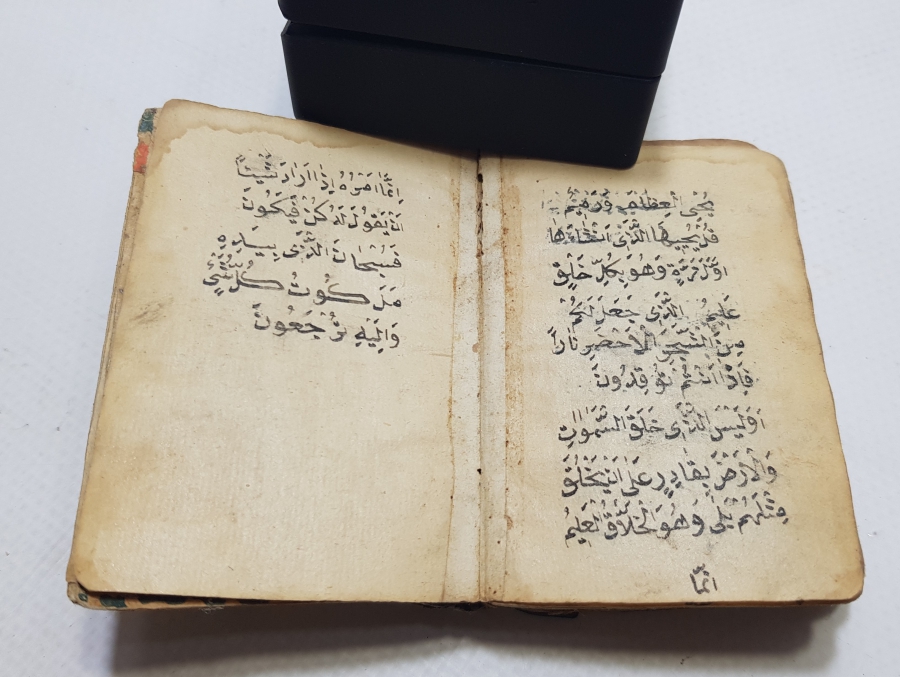 يُحْيِ الْعِظَامَ وَهِيَ رَمِيمٌ
قُلْ يُحْيِيهَا الَّذِي اَنْشَاَهَا
اَوَّلَ مَرَّةٍ وَهُوَ بِكُلِّ خَلْقٍ
عَلِيمٌ الَّذِي جَعَلَ لَكُمْ
مِنَ الشَّجَرِ الْاَخْضَرِ نَارًا
فَاِذَا اَنْتُمْ تُوقِدُونَ
اَوَلَيْسَ الَّذِي خَلَقَ السَّمٰوَاتِ
وَالْاَرْضَ بِقَادِرٍ عَلٰى اَنْ يَخْلُقَ
مِثْلَهُمْ بَلٰى وَهُوَ الْخَلَّاقُ الْعَلِيمُ
اِنَّمَا
اِنَّمَا اَمْرُهُ اِذَا اَرَادَ شَيْئًا
اَنْ يَقُولَ لَهُ كُنْ فَيَكُونُ
فَسُبْحَانَ الَّذِي بِيَدِهِ
مَلَكُوتُ كُلِّ شَيْءٍ
وَاِلَيْهِ تُرْجَعُونَ